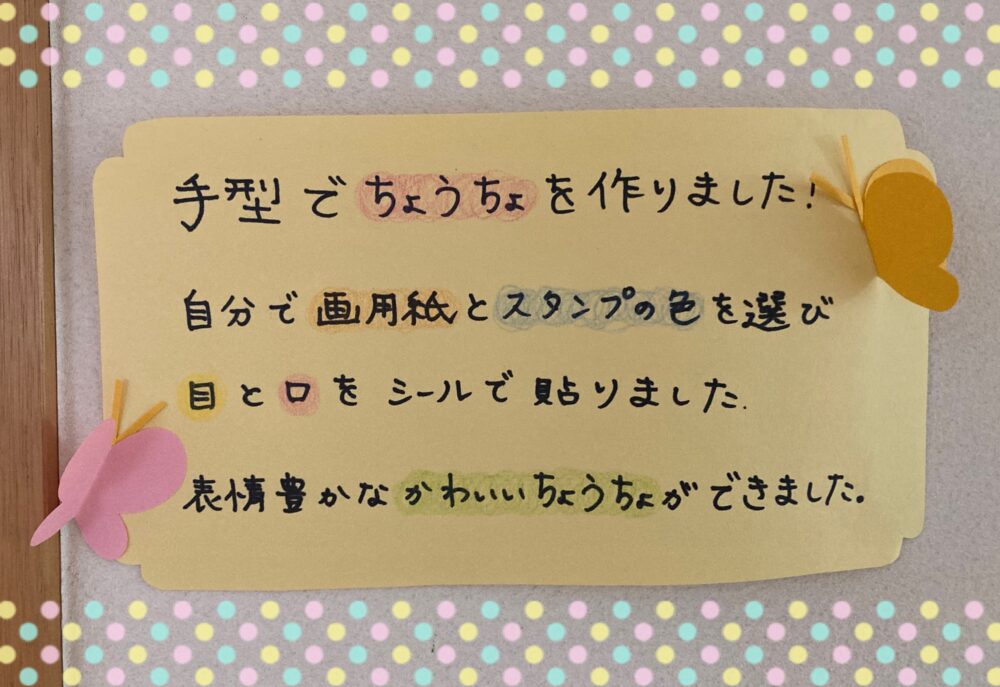 手型でちょうちょを作りました!
自分で画用紙とスタンプの色を選び
目と口をシールで貼りました.
表情豊かなかわいいちょうちょができました。